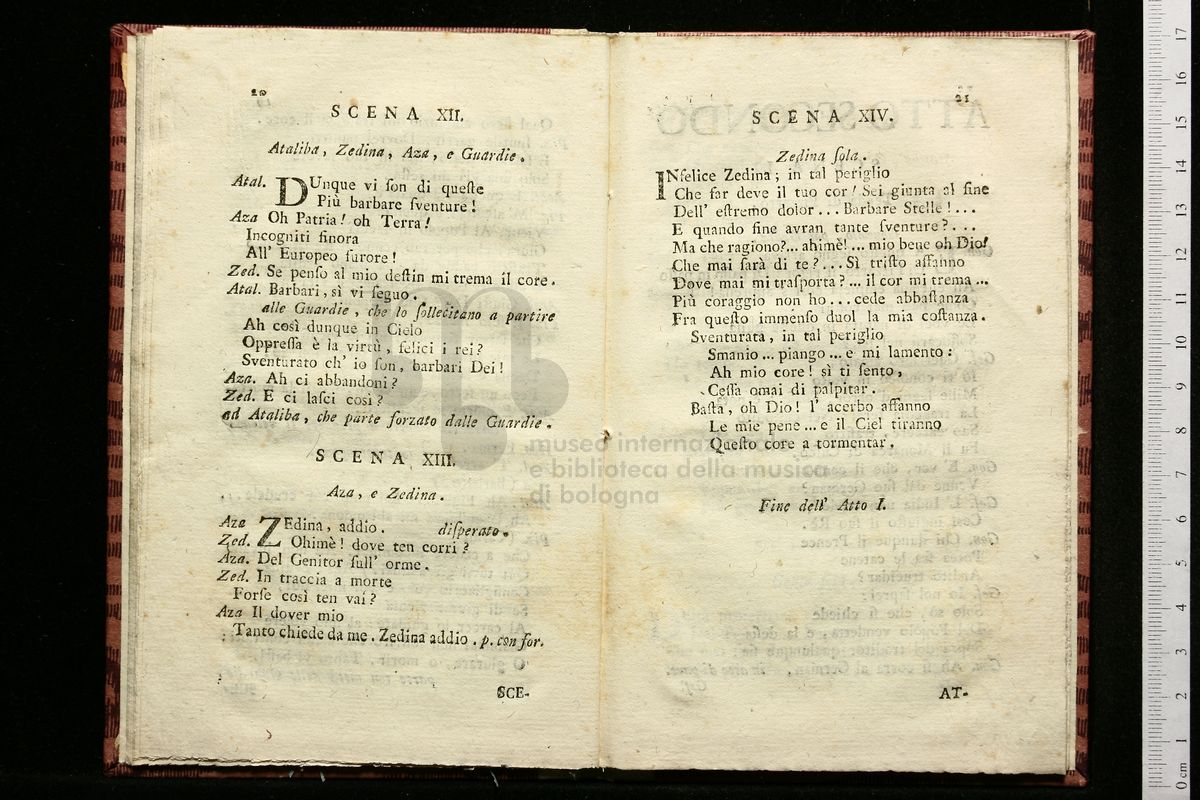 20
SCENA XII.
Ataliba, Zedina, Aza, e Guardie.
Atal. DUnque vi ſon di queſte
Più barbare ſventure!
Aza Oh Patria! oh Terra!
Incogniti finora
All' Europeo furore!
Zed. Se penſo al mio deſtin mi trema il core.
Atal. Barbari, sì vi ſeguo.
alle Guardie, che lo ſollecitano a partire
Ah così dunque in Cielo
Oppreſſa è la virtù, felici i rei?
Sventurato ch' io ſon, barbari Dei!
Aza. Ah ci abbandoni?
Zed. E ci laſci così?
ad Ataliba, che parte forzato dalle Guardie.
SCENA XIII.
Aza, e Zedina.
Aza ZEdina, addio. diſperato.
Zed. Ohimè! dove ten corri?
Aza. Del Genitor full' orme.
Zed. In traccia a morte
Forſe così ten vai?
Aza Il dover mio
Tanto chiede da me. Zedina addio. p. con for.
SCE-
21
SCENA XIV.
Zedina ſola.
INfelice Zedina; in tal periglio
Che far deve il tuo cor! Sei giunta al fine
Dell' eſtremo dolor... Barbare Stelle!...
E quando fine avran tante ſventure?...
Ma che ragiono?... ahimè!... mio bene oh Dio!
Che mai ſarà di te?... Sì triſto affanno
Dove mai mi traſporta?... il cor mi trema...
Più coraggio non ho... cede abbaſtanza
Fra queſto immenſo duol la mia coſtanza.
Sventurata, in tal periglio
Smanio... piango... e mi lamento:
Ah mio core! sì ti ſento,
Ceſſa omai di palpitar.
Baſta, oh Dio! l' acerbo affanno
Le mie pene... e il Ciel tiranno
Queſto core a tormentar.
Fine dell' Atto I.
AT-
museo internazionale
e biblioteca della musica
di bologna
0 cm 1 2 3 4 5 6 7 8 9 10 11 12 13 14 15 16 17